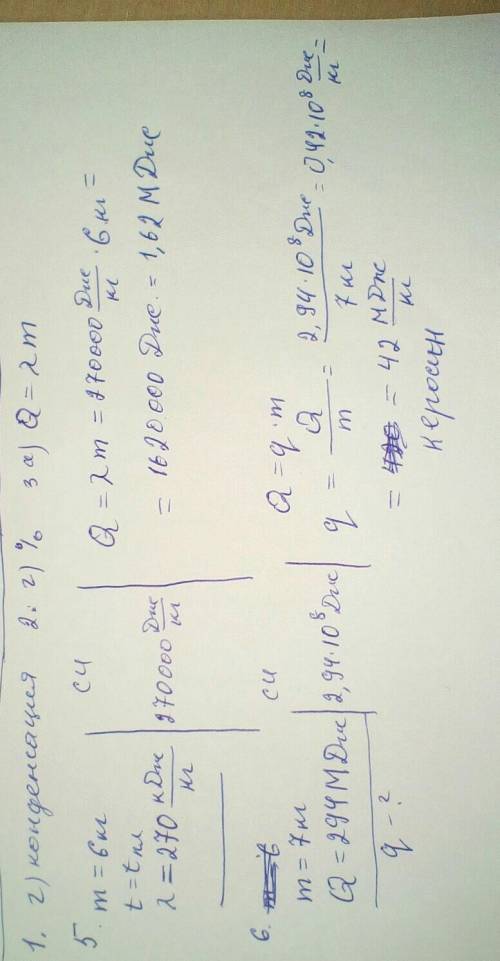 1. г) конденсация 2. г) % 3 а) Q = λm
5. m = 6 кг
t = tпл
λ = 270 кДж/кг
СИ
270000 Дж/кг
Q = λm = 270000 Дж/кг · 6 кг =
= 1620000 Дж = 1,62 МДж
6.
m = 7 кг
Q = 294 МДж
q - ?
СИ
2,94·10⁸ Дж
Q = q·m
q = Q/m = 2,94·10⁸ Дж/7 кг = 0,42·10⁸ Дж/кг =
= 42 МДж/кг
керосин